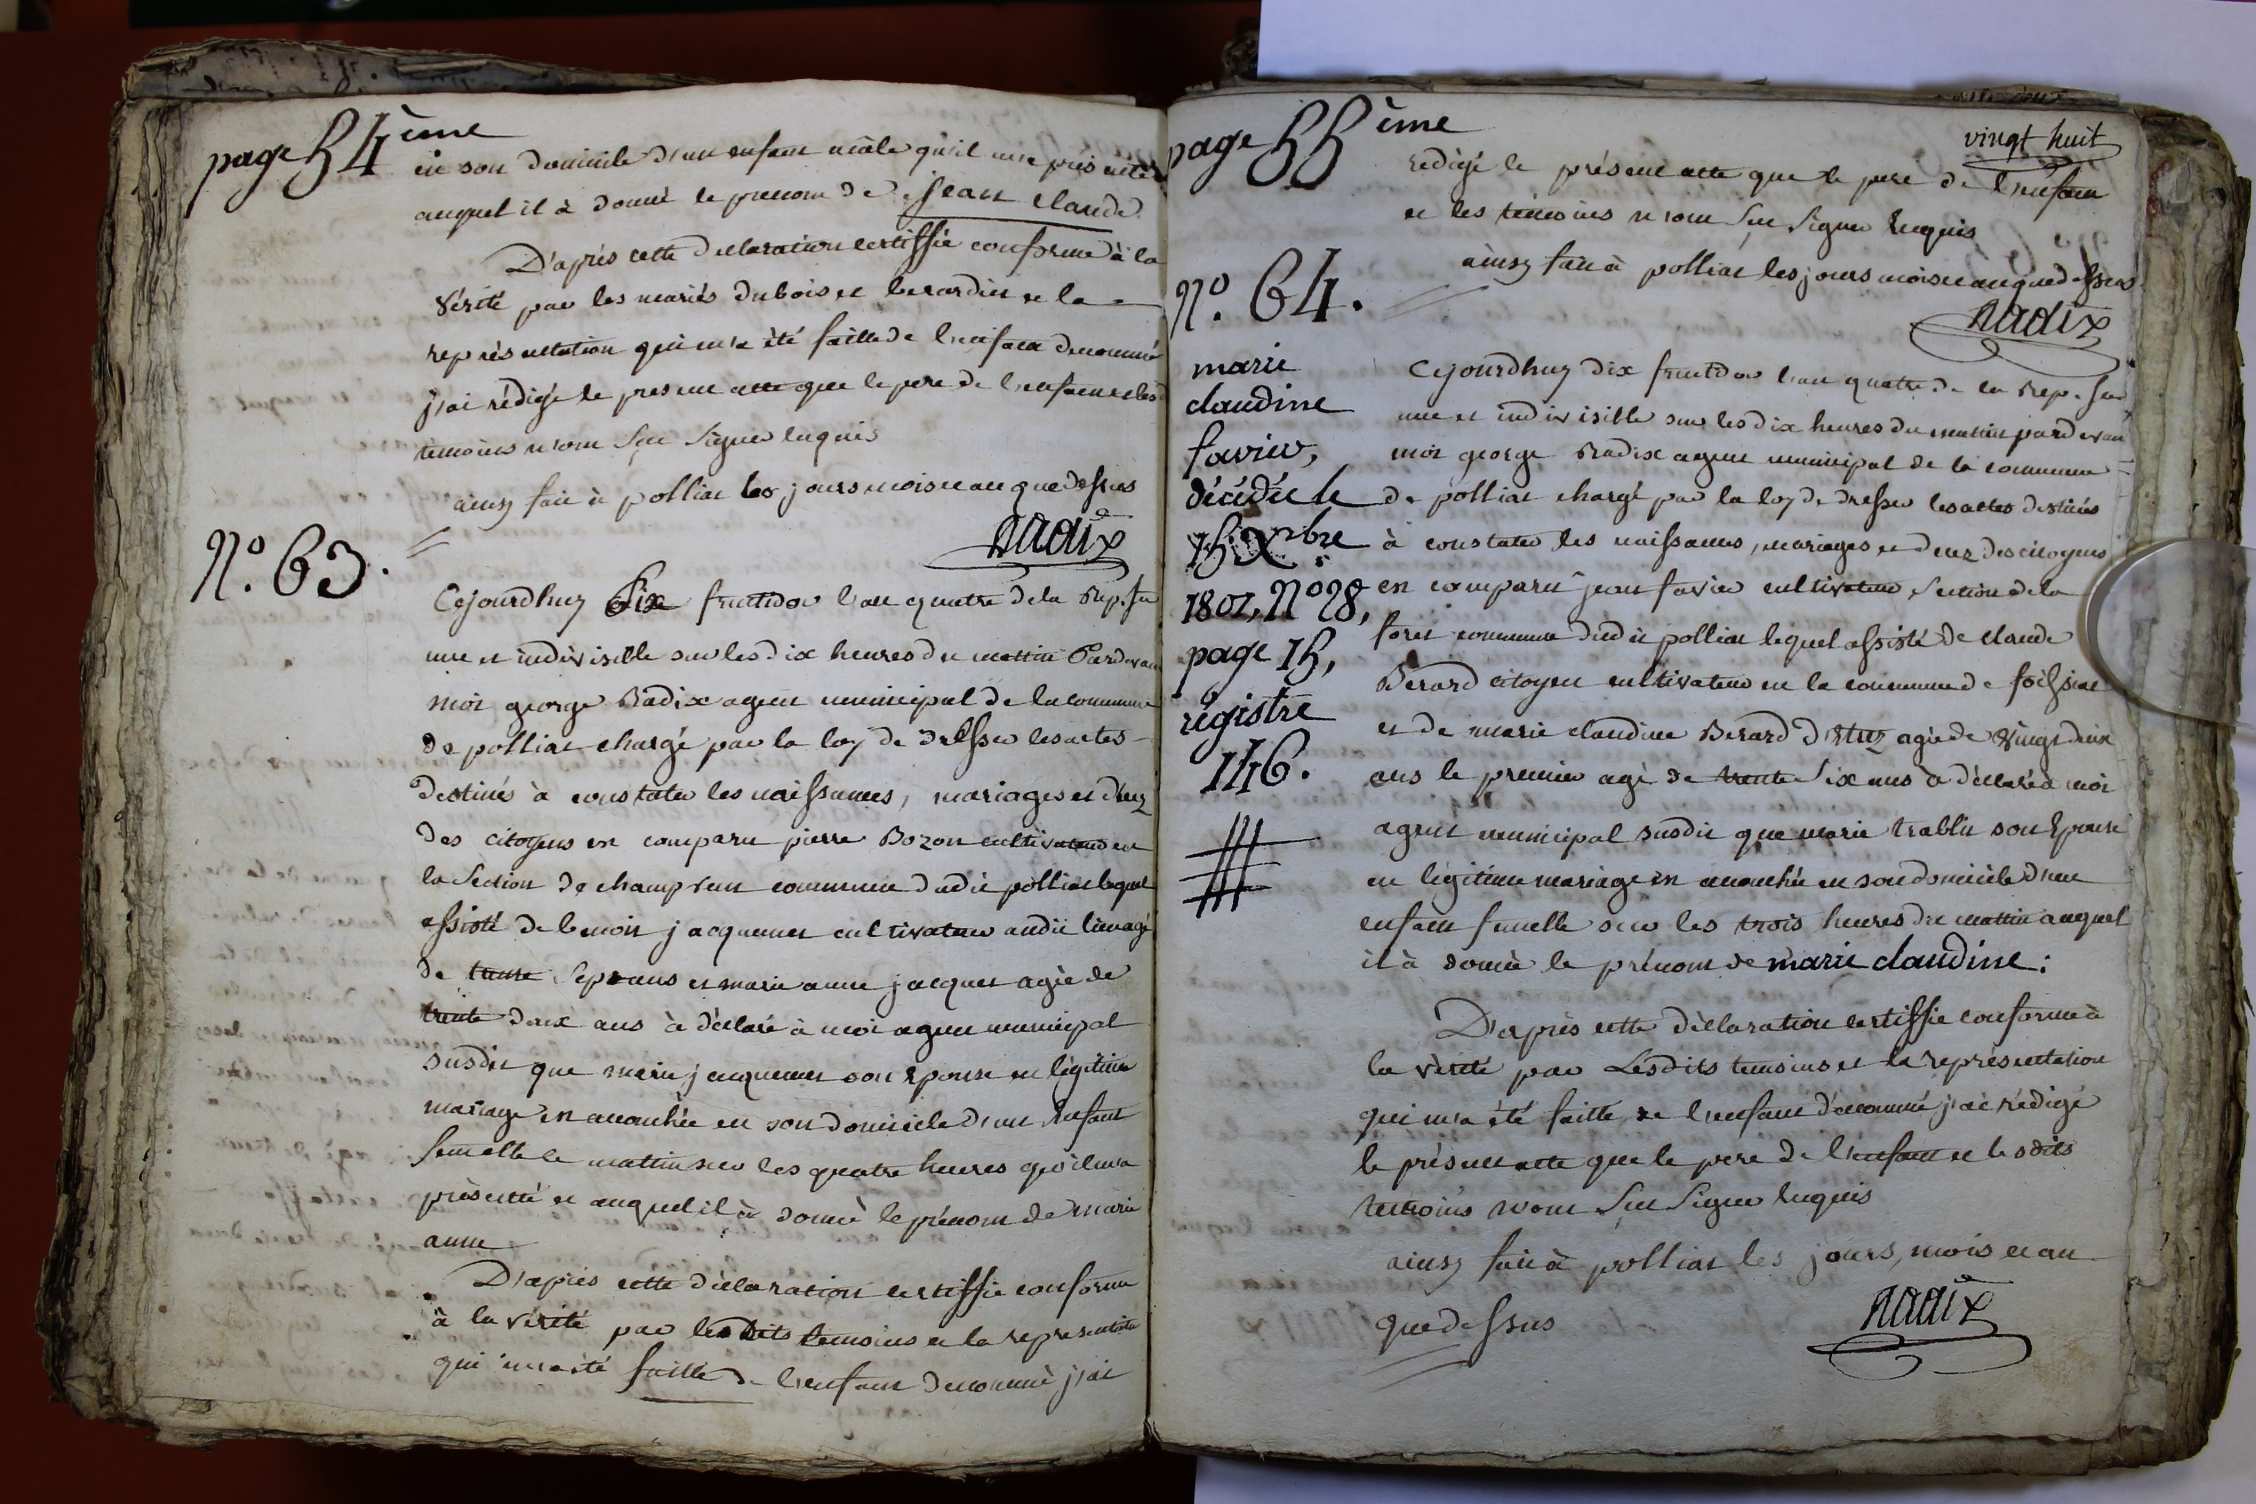 page 54ème
en son domicile d'un enfant mâle qu'il m'a présenté
auquel il à donné le prenom de jean claude
D'après cette declaration certiffié conforme à la
vérité par les mariés dubois et berardin et la
représentation qui m'a été faitte de l'enfant denommé
j'ai rédigé le present acte que le pere de l'enfant et les
temoins n'ont sçu signer enquis
ainsy fait à polliat les jours mois et an que dessus
Radix
N.º 63.
Cejourdhuy six fructidor l'an quatre de la Rep. fr
une et indivisible sur les dix heures du mattin Pardevan
moi george Radix agent municipal de la commune
de polliat chargé par la loy de dresser les actes
destinés à constater les naissances, mariages et deces
des citoyens est comparu pierre Bozon cultivateur en
la section de champvent commune dudit polliat lequel
assisté de benoit jacquemet cultivateur audit lieu agé
de trente sept ans et marie anne jacquet agée de
trente deux ans à déclaré à moi agent municipal
susdit que marie jacquemet son epouse en légitime
mariage est accouchée en son domicile d'un enfant
femelle le mattin sur les quatre heures qu'il m'a
présenté et auquel il à donné le prénom de marie
anne
D'après cette déclaration certiffié conforme
à la vérité par lesdits temoins et la representation
qui m'a été faitte de l'enfant denommé j'ai
page 55ème
vingt huit
redigé le présent acte que le pere de l'enfant
et les témoins n'ont sçu signer enquis
ainsy fait à polliat les jours mois et an que dessus
Radix
N.º 64.
marie
claudine
favier,
décédée le
15 Xbre
1801, Nº 28,
page 15,
régistre
146.
Cejourdhuy dix fructidor l'an quatre de la Rep. fran
une et indivisible sur les dix heures du mattin pardevan
moi george Radix agent municipal de la commune
de polliat chargé par la loy de dresser les actes destinés
à constater les naissances, mariages et deces des citoyens
est comparu jean favier cultivateur, section de la
foret commune dudit polliat lequel assisté de claude
Berard citoyen cultivateur en la commune de foissiat
et de marie claudine Berard agée de vingt deux
ans le premier agé de trente six ans à déclaré à moi
agent municipal susdit que marie trablit son Epouse
en légitime mariage est accouchée en son domicile d'un
enfant femelle sur les trois heures du mattin auquel
il à donné le prénom de marie claudine :
D'après cette déclaration certiffié conforme à
la vérité par Lesdits temoins et la représentation
qui m'a été faitte de l'enfant dénommé j'ai rédigé
le présent acte que le pere de l'enfant et lesdits
temoins n'ont sçu signer enquis
ainsy fait à polliat les jours, mois et an
que dessus
Radix